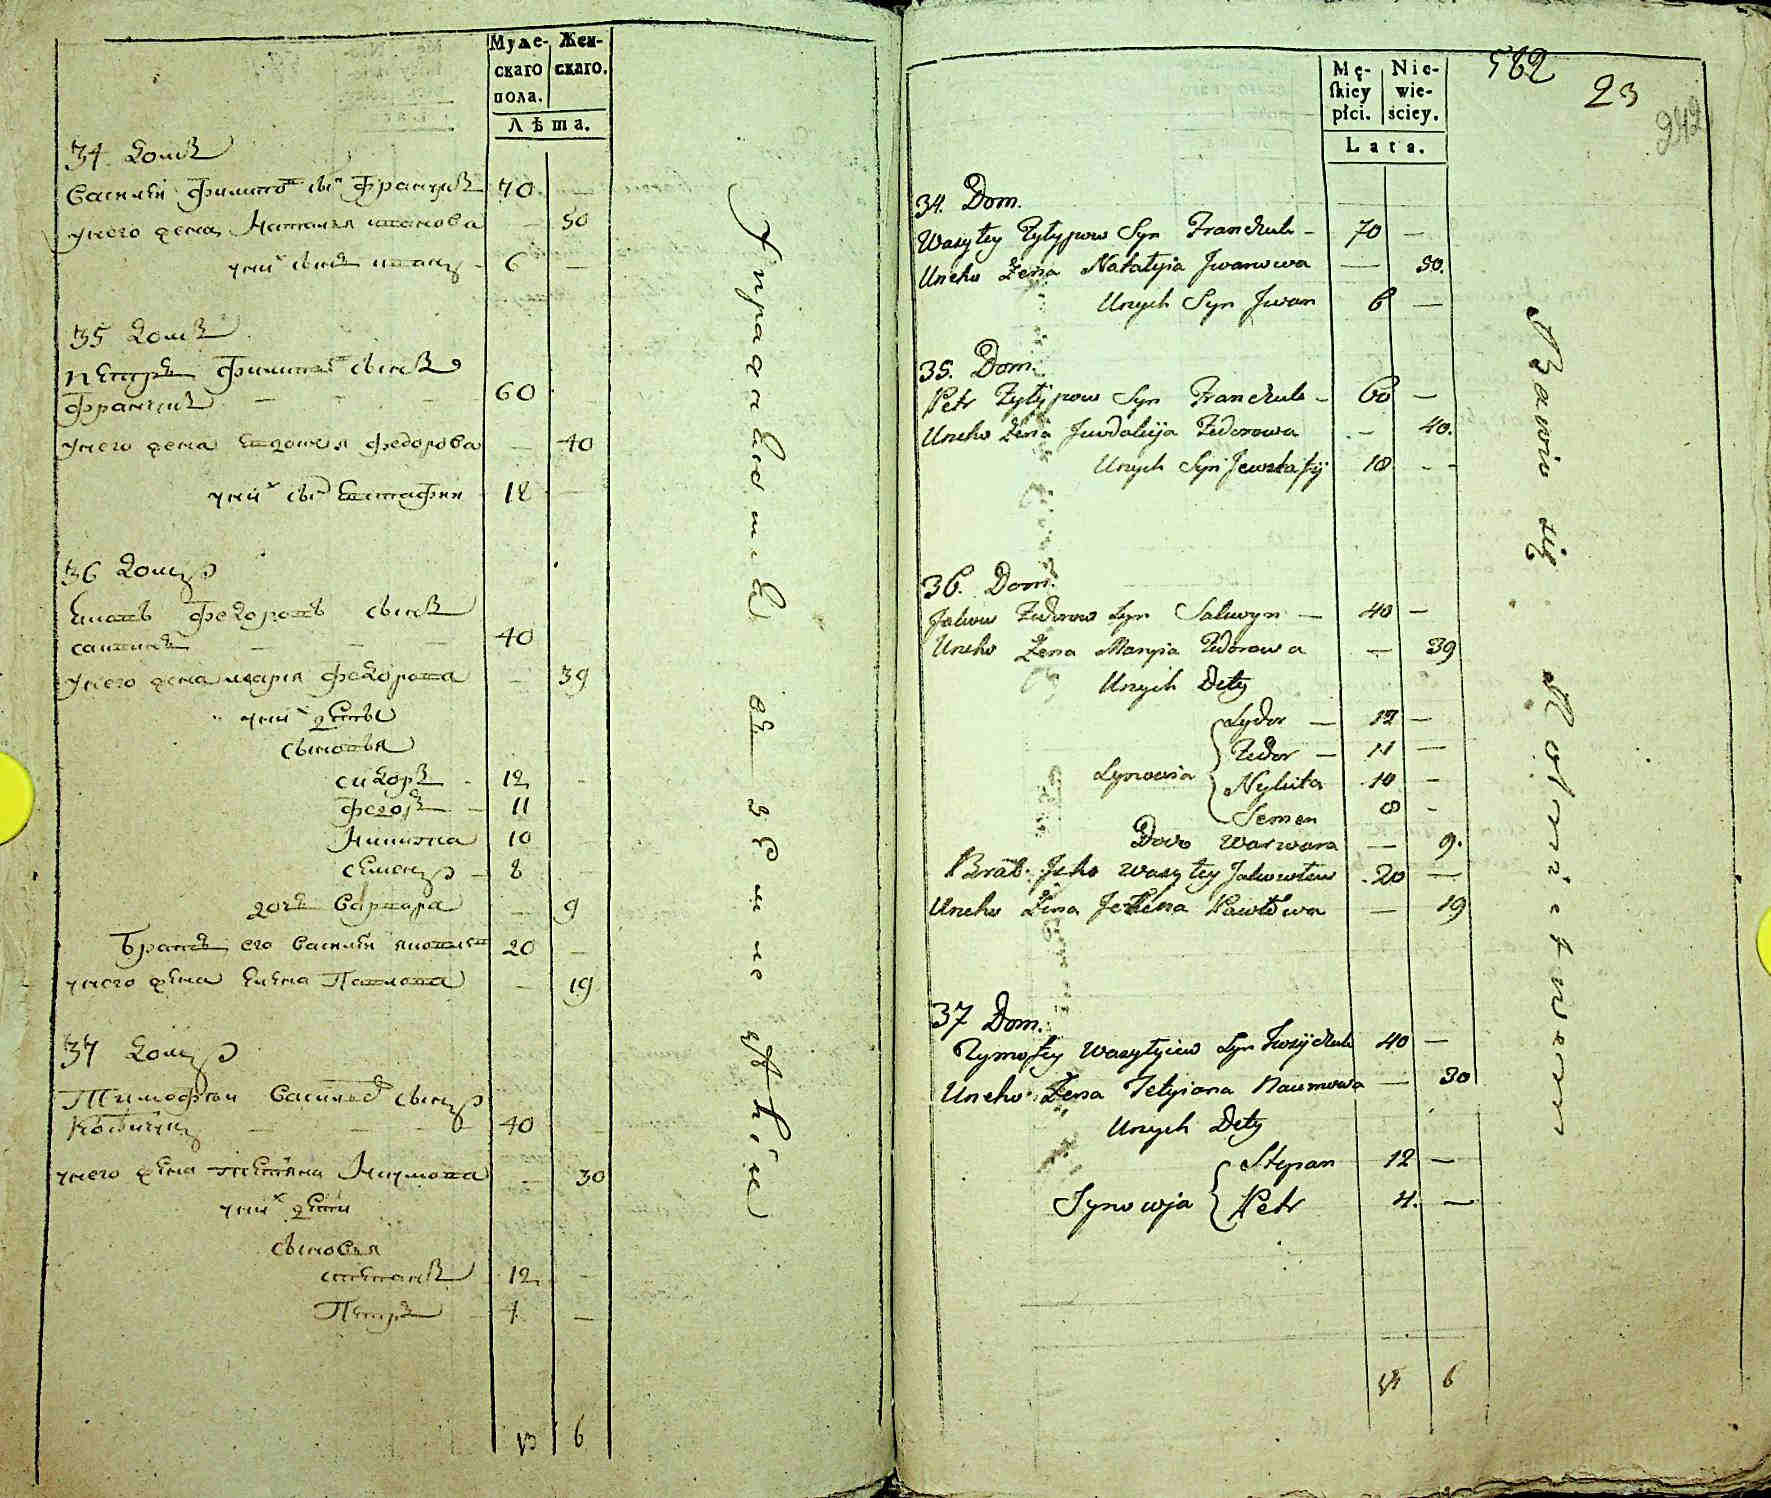 Муже-
скаго
пола.
Жен-
скаго.
Лѣта.
34 Домъ
Василий Филипов сын Францукъ 70 —
у него жена Наталья Иванова — 50
у них сынъ Иванъ - 6 —
35 Домъ
Петръ Филипов сынъ
Францукъ — — 60
у него жена Евдокея Федорова — 40
у них сын Евстафии 18 —
36 Домъ
Яковъ Федоровъ сынъ
— — 40
у него жена Мария Федорова — 39
у них дети
сыновья
Сидоръ - 12 -
Федоръ - 11
Никита 10 —
Семенъ - 8 —
дочь Варвара — 9
братъ его Василий 20 —
у него жена Елена Павлова — 19
37 Домъ
Тимофеи Васильев сынъ
— — 40
у него жена Татьяна Наумова — 30
у них дети
сыновья
Степанъ 12 -
Петръ 4 —
13 6
Упражняется въ земледѣлии
Mę-
skiey
płci.
Nie-
wie-
sciey.
Lata.
562
23
242
34. Dom.
Wasyley Fylypow Syn Franczuk - 70 —
Uneho Żena Natalyia Jwanowa — 50.
Unych Syn Jwan 6 —
35. Dom.
Petr Fylypow Syn Franczuk - 60 —
Uneho Żena Jewdokija Fedorowa - 40.
Unych Syn Jewstafij 18 - -
36. Dom.
Jakow Fedorow Syn — 40 —
Uneho Żena Maryia Fedorowa — 39
Unych Dety
Synowia
Sydor — 12 —
Fedor — 11 —
Nykita 10 —
Semen 8 -
Doco Warwara — 9.
Brat Jeho Wasyley 20 —
Uneho Żena Jełena Pawłowa — 19
37 Dom.
Tymofey Wasylyiew Syn 40 —
Uneho Żena Tetyiana Naumowa — 30
Unych Dety
Synowja
Stepan 12 —
Petr 4. —
6
Bawio się Rolnictwem